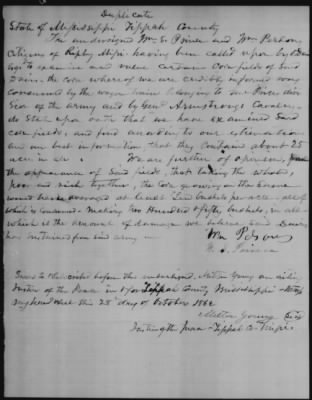 Duplicate
State of Mississippi Tippah County
The undersigned Wm E. Prince and Wm Parsons
Citizens of Ripley Mipi having been called upon by
to examine and value certain Cornfields of said
Davis. the corn where of we are credibly informed was
consumed by the wagon train belonging to Gen Prices divi
sion of the army and by Genl Armstrongs Cavalry
do State upon oath that we have examined said
corn fields, and find according to our estimation
and our best information that they contained about 25
acres in all. We are further of opinion, from
the appearance of said fields, that taking the whole,
poor and rich together, the Corn growing on the same
would have averaged at least Ten bushels per acre. all of
which is consumed. Making Two Hundred & fifty bushels, in all
which is the amount of damage we believe said Davis
has sustained from said army
Wm Parsons
Sworn to & subscribed before the undersigned, Milton Young an acting
Justice of the Peace in & for Tippah County Mississippi
this 25th day of October 1862
Milton Young
Justice of the Peace Tippah Co